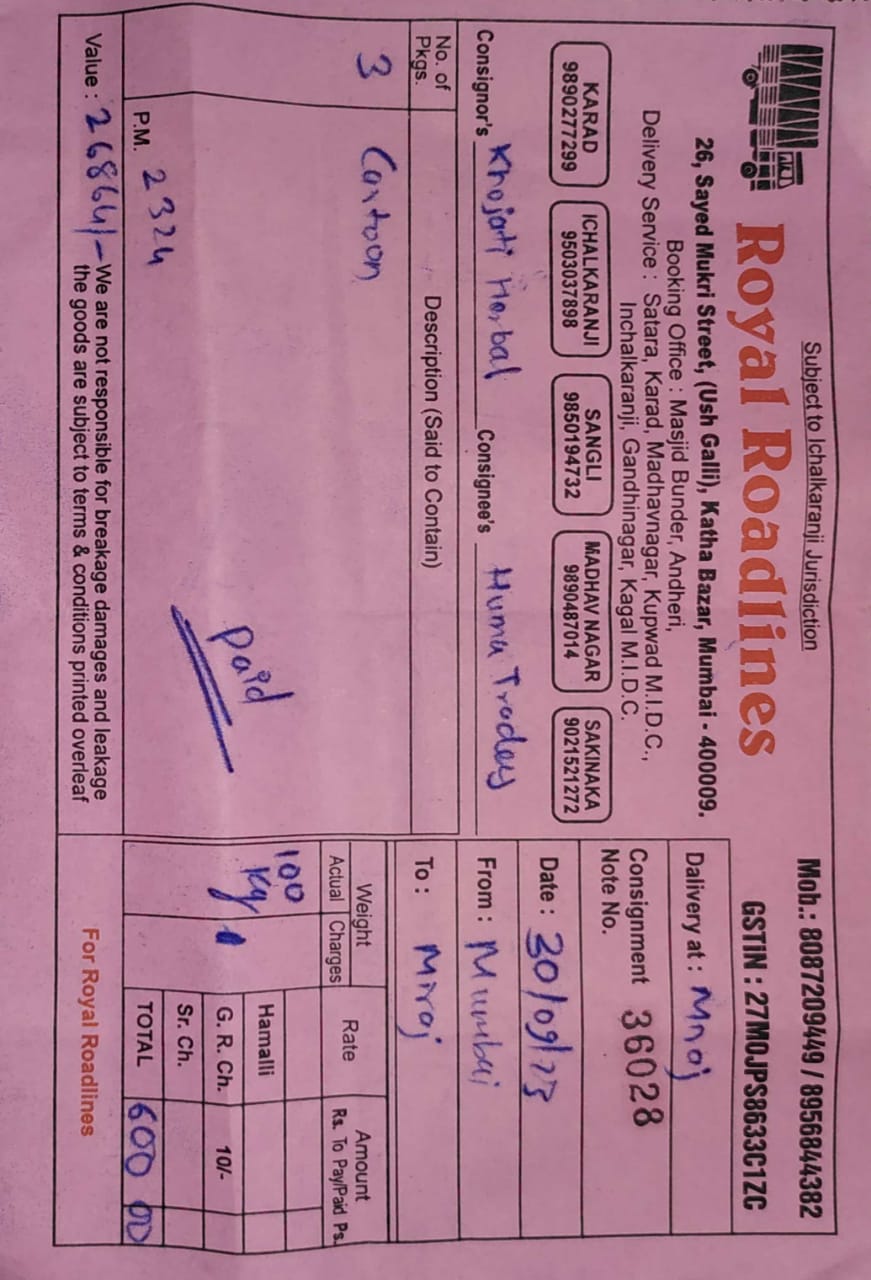 Subject to Ichalkaranji Jurisdiction
Mob.: 8087209449 / 8956844382
GSTIN : 27MOJPS8633C1ZC
Royal Roadlines
26, Sayed Mukri Street, (Ush Galli), Katha Bazar, Mumbai - 400009.
Booking Office : Masjid Bunder, Andheri,
Delivery Service : Satara, Karad, Madhavnagar, Kupwad M.I.D.C.,
Inchalkaranji, Gandhinagar, Kagal M.I.D.C.
KARAD
9890277299
ICHALKARANJI
9503037898
SANGLI
9850194732
MADHAV NAGAR
9890487014
SAKINAKA
9021521272
Dalivery at : Miraj
Consignment
Note No. 36028
Date : 30/09/23
From : Mumbai
To : Miraj
Consignor's Khojati Herbal Consignee's Huma Trades
No. of
Pkgs.
Description (Said to Contain)
Weight
Actual Charges
Rate
Amount
Rs. To Pay/Paid Ps.
3 Cartoon
100
Kg
Paid
Hamalli
G. R. Ch. 10/-
Sr. Ch.
TOTAL 600 00
P.M. 2324
Value : 26864/- We are not responsible for breakage damages and leakage
the goods are subject to terms & conditions printed overleaf
For Royal Roadlines